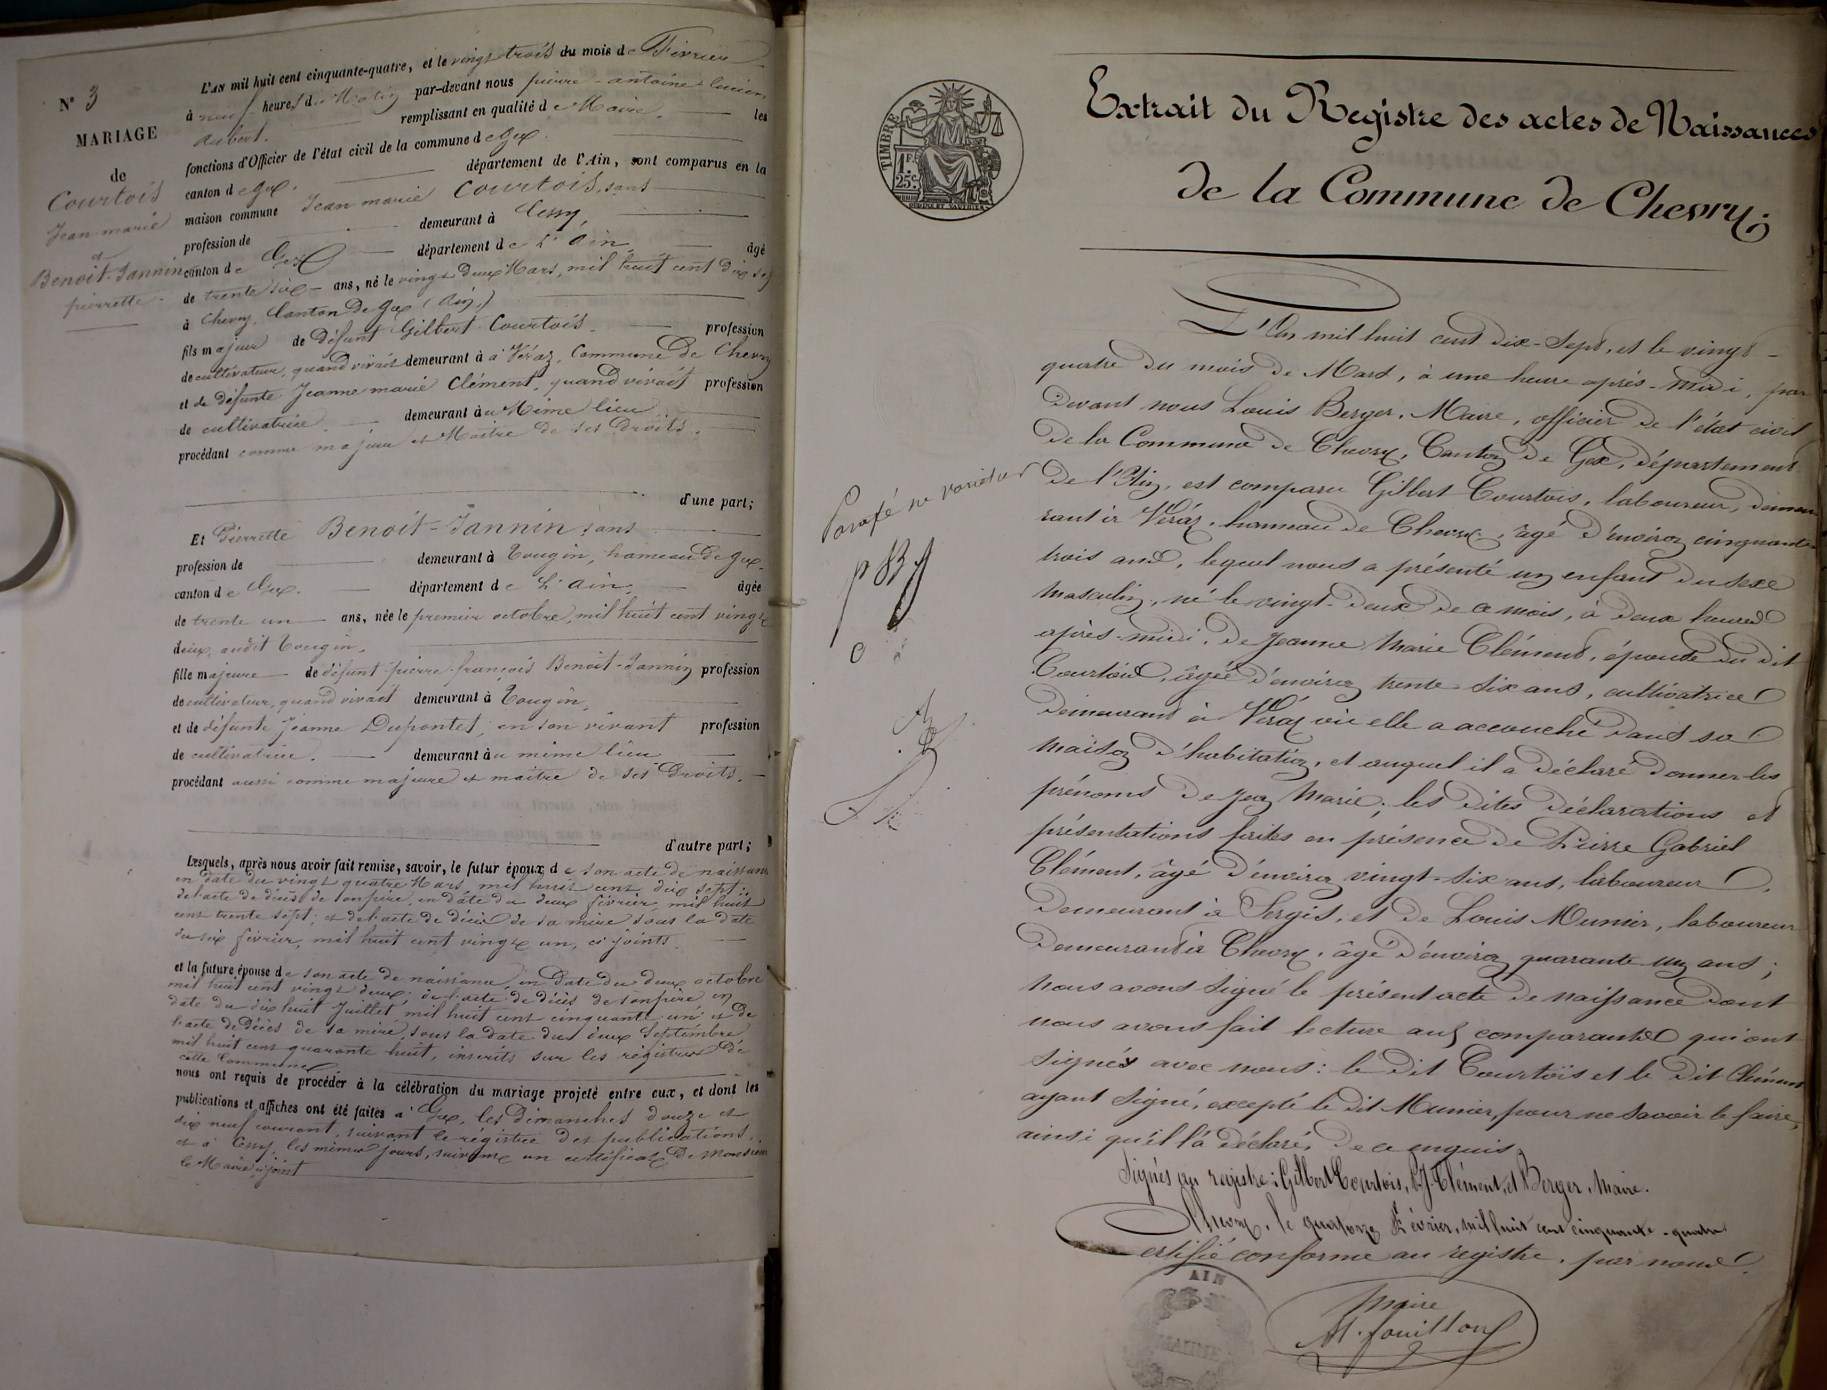 N° 3
MARIAGE
de
Courtois
Jean marie
et
Benoit-Jannin
pierrette
L'AN mil huit cent cinquante-quatre, et le vingt trois du mois de Février
à neuf heures du Matin par-devant nous pierre-antoine-lucien
aubert. remplissant en qualité de Maire. les
fonctions d'Officier de l'état civil de la commune de Gex
canton de Gex. département de l'Ain, sont comparus en la
maison commune Jean marie Courtois, sans
profession de demeurant à Cessy,
canton de Gex département de L'Ain, âgé
de trente six ans, né le vingt deux Mars, mil huit cent dix sept
à Chevry, Canton de Gex (Ain,)
fils majeur de défunt Gilbert Courtois. profession
de cultivateur, quand vivait demeurant à à Véraz, Commune de Chevry
et de défunte Jeanne marie Clément, quand vivait profession
de cultivatrice. demeurant au Même lieu
procédant comme majeur et Maître de ses droits.
d'une part;
Et Pierrette Benoit-Jannin, sans
profession de demeurant à Tougin, hameau de Gex.
canton de Gex. département de L'Ain. âgée
de trente un ans, née le premier octobre, mil huit cent vingt
deux, audit Tougin.
fille majeure de défunt pierre-françois Benoit-Jannin profession
de cultivateur, quand vivait demeurant à Tougin,
et de défunte Jeanne Dupontet, en son vivant profession
de cultivatrice. demeurant au même lieu
procédant aussi comme majeure et maître de ses droits.
d'autre part;
Lesquels, après nous avoir fait remise, savoir, le futur époux de son acte de naissance
en date du vingt quatre Mars, mil huit cent dix sept;
de l'acte de décès de son père, en date du deux février, mil huit
cent trente sept; et de l'acte de décès de sa mère sous la date
du six février, mil huit cent vingt un, ci joints.
et la future épouse de son acte de naissance, en Date du deux octobre
mil huit cent vingt deux; de l'acte de décès de son père, en
date du dix huit Juillet, mil huit cent cinquante un; et de
l'acte de décès de sa mère, sous la date du deux Septembre
mil huit cent quarante huit, inscrits sur les régistres de
cette Commune
nous ont requis de procéder à la célébration du mariage projeté entre eux, et dont les
publications et affiches ont été faites à Gex, les Dimanches douze et
dix neuf courant, suivant le régistre des publications,
et à Cessy, les mêmes jours, suivant un certificat de Monsieur
le Maire, ci joint
TIMBRE
1 F.
25 c.
Extrait du Registre des actes de Naissances
de la Commune de Chevry.
L'An mil huit cent dix-Sept, et le vingt-
quatre du mois de Mars, à une heure après-Midi, par
devant nous Louis Berger, Maire, officier de l'état civil
de la Commune de Chevry, Canton de Gex, département
de l'Ain, est comparu Gilbert Courtois, laboureur, demeu-
rant à Véraz, hameau de Chevry, âgé d'environ cinquante-
trois ans, lequel nous a présenté un enfant du sexe
Masculin, né le vingt-deux de ce mois, à deux heures
après-midi, de Jeanne Marie Clément, épouse du dit
Courtois, âgée d'environ trente six ans, cultivatrice
demeurant à Véraz où elle a accouché dans sa
Maison d'habitation, et auquel il a déclaré donner les
prénoms de Jean Marie; les dites déclarations et
présentations faites en présence de Pierre Gabriel
Clément, âgé d'environ vingt-six ans, laboureur,
demeurant à Sergis, et de Louis Munier, laboureur
demeurant à Chevry, âgé d'environ quarante un ans;
nous avons signé le présent acte de naissance dont
nous avons fait lecture aux comparants qui ont
signés avec nous: le dit Courtois et le dit Clément
ayant signé, excepté le dit Munier, pour ne savoir le faire,
ainsi qu'il l'a déclaré, de ce enquis.
Signés au registre: Gilbert Courtois, Clément, et Berger, Maire.
Chevry, le quatorze Février, mil huit cent cinquante-quatre
Certifié conforme au registre, par nous
Maire
Parafé ne varietur
AIN